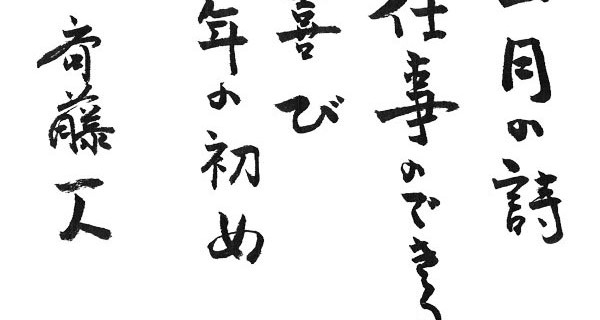 月の詩
仕事のできる
喜び
年の初め
斎藤一人